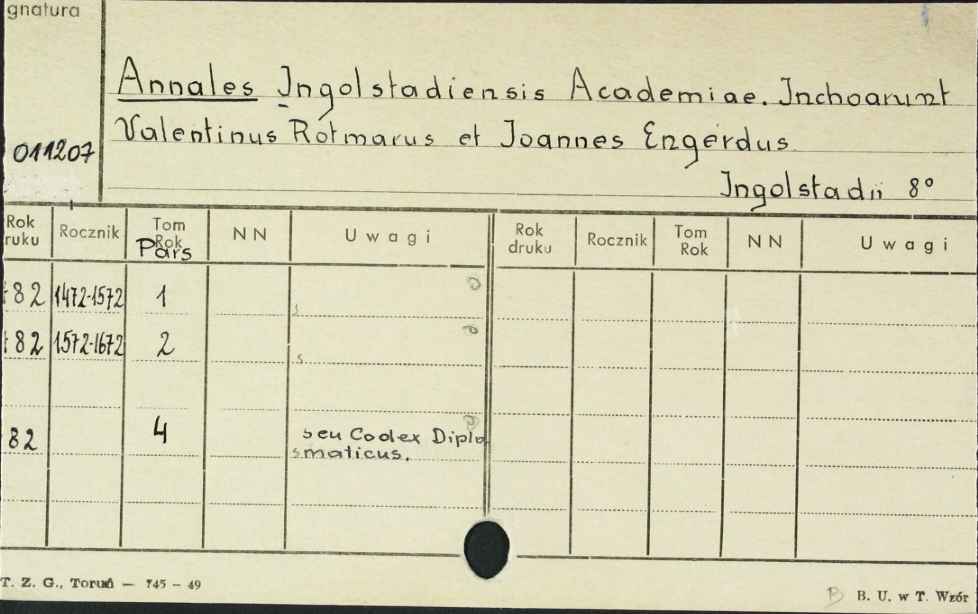 gnatura
Annales Ingolstadiensis Academiae. Inchoarunt
Valentinus Rotmarus et Joannes Engerdus
011207
Ingolstadii 8°
Rok ruku Rocznik Tom Rok Pars NN Uwagi Rok druku Rocznik Tom Rok NN Uwagi
82 1472-1572 1
s
82 1572-1672 2
s
82 4 seu Codex Diplo
smaticus.
T. Z. G., Toruń — 745 - 49
B. U. w T. Wzór